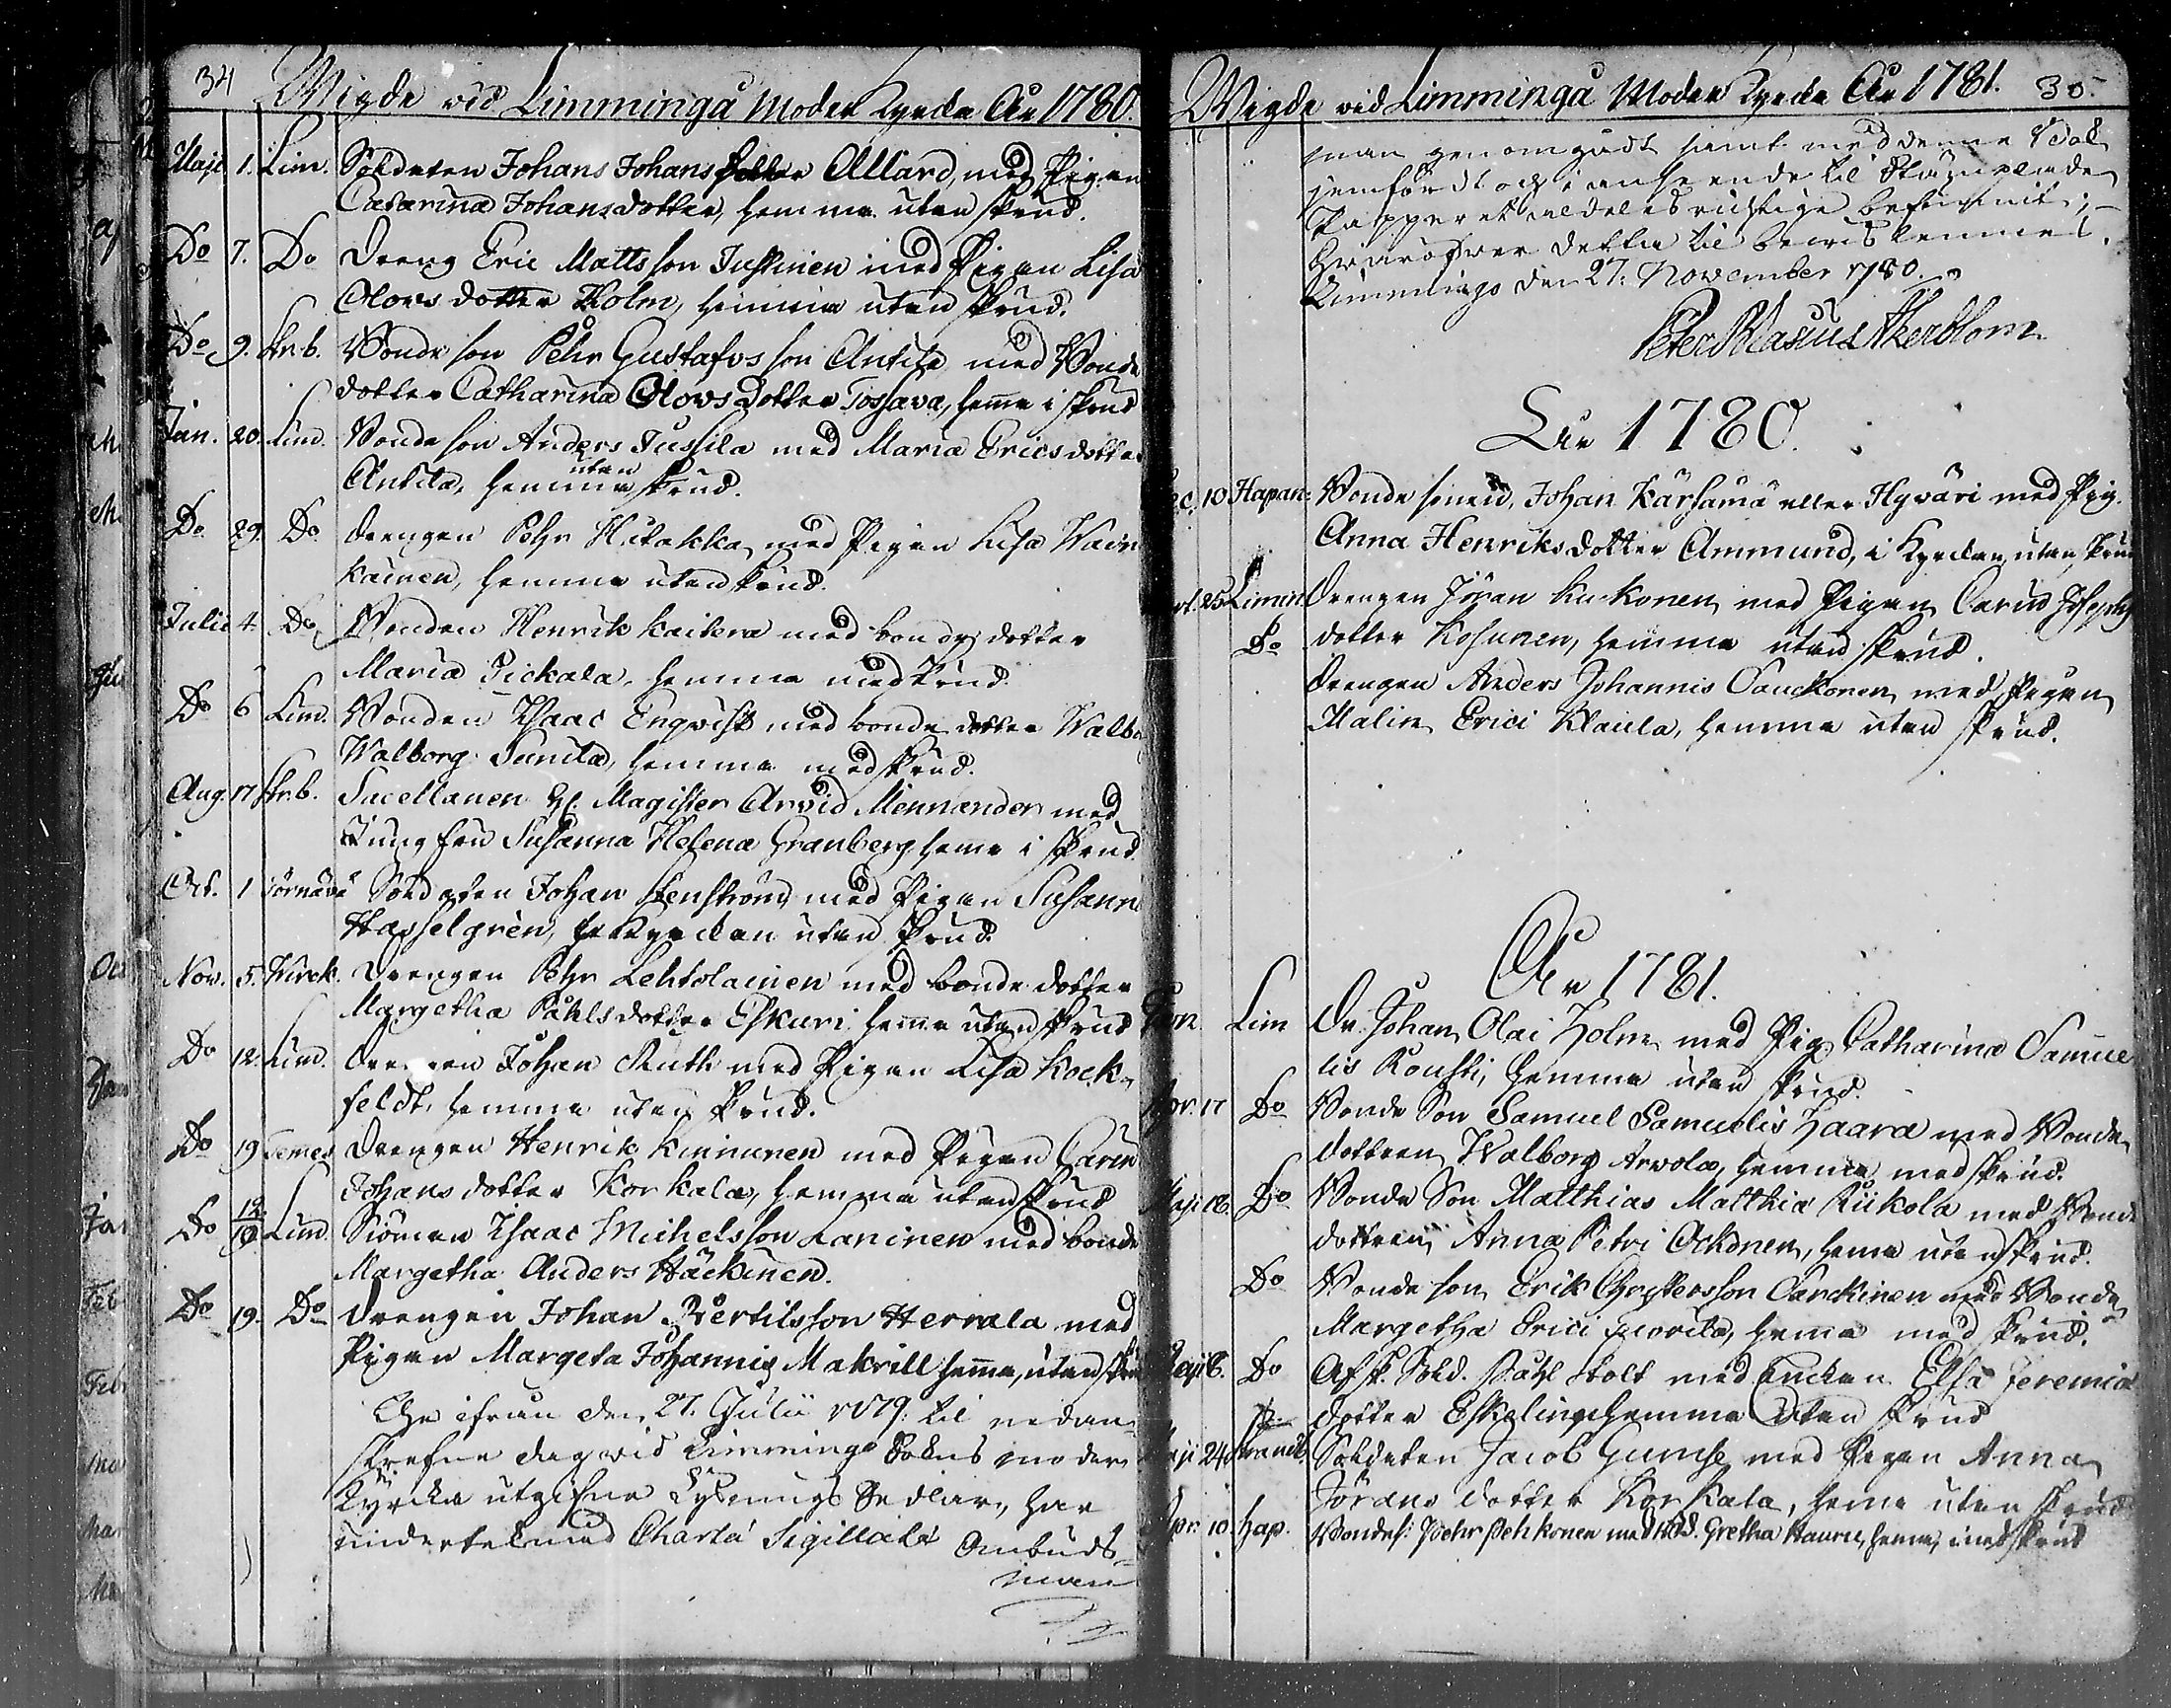 34 Wigde vid Limmingå Moder Kyrcka År 1780.
Maji 1. Lim. Soldaten Johans Johansson Allard, med Pigan
Catarina Johansdotter, hemma utan skrud.
Do 7. Do Dreng Eric Mattsson Jussinen med Pigan Lisa
Olovsdotter Holm, hemma utan skrud.
Do 9. Skr.b. Bonde son Pehr Gustafvsson Antila med Bonde
dotter Catharina Olovs Dotter Tossava, heme i skrud
Jun. 20. Lim. Bonde son Anders Jussila med Maria Ericsdotter
Antila, hemma utan skrud.
Do 29. Do drengen Pehr Hutakka med Pigan Lisa
kainen, hemma utan skrud.
Julii 4. Do Bonden Henrik Kaitera med bonde dotter
Maria Pickala, hemma med skrud
Do 6 Lim. Bonden Isaac Enqvist med bonde dotter Walb
Walborg Sunila, hemma med skrud.
Aug. 17 Skr.b. Sacellanen H. Magister Arvid Mennander med
Jungfru Susanna Helena Granberg heme i skrud
Oct. 1 Törnävä Soldaten Johan Stenström med Pigan Susanna
Hasselgrèn, Kyrckan utan skrud.
Nov. 5. Wirck. drengen Pehr Lehtolainen med bonde dotter
Margetha Påhlsdotter Eskuri heme utan skrud
Do 12. Lim. drengen Johan Ruth med Pigan Lisa Kock-
feldt, hemma utan skrud.
Do 19 Temes Drengen Henrik Kinnunen med Pigan Carin
Johans dotter Korkala, hemma utan skrud
Do 12. 19 Lim. Siöman Isaac Michelsson Laninen med bonde
Margetha Anders Häckinen.
Do 19. Do drengen Johan Bertilsson Herrala med
Pigan Margeta Johannis Makrill heme, utan skrud
ifrån den 27. Julii 1779. til nedan-
skrefne dag vid Limmingo Sokns moder
Kyrcka utgifne Lysnings Sedlar, har
undertecknad Charta Sigillatæ Ombuds-
man
Wigde vid Limmingå Moder Kyrcka År 1781. 35.
man genomgådt samt med denna
jemfördt och i anseende til Stämplade
Papperet aldeles richtige befunnit;
hvaröfver detta til bewis lemnas.
Limmingo den 27. November 1780.
Peter Niclas Åkerblom
År 1780.
10 Hapan: Bonde sonen, Johan Kärsämä eller Hyväri med Pig.
Anna Henriksdotter Ammund, i Kyrckan, utan skrud
25 Limin. Drengen Jöran Kukonen med Pigan Carin Josephs
Do dotter Kosunen, hemma utan skrud.
drengen Anders Johannis Sauckonen med Pigan
Malin Erici Klaula, hemma utan skrud.
År 1781.
Lim Dr. Johan Olai Holm med Pig. Catharina Samue
lis Rousti, hemma utan skrud.
17 Do Bonde Son Samuel Samuelis Haara med Bonde
dottren Walborg Arvola, hemma med skrud.
Maji 18. Do Bonde Son Matthias Matthiæ Riikola med Bonde
dottren Anna Petri Ockonen, heme utan skrud.
Do Bonde son Erik Christersson Sarckinen med Bonde
Margetha Erici Juorila, heme med skrud.
Maji 6. Do Afsk. Sold. Påhl Stolt med Enckan Elsa Jeremiæ
dotter Eskeling hemma utan skrud
Maji 24 Soldaten Jacob Gumse med Pigan Anna
Jörans dotter Korkala, heme utan skrud
Apr. 10 Hap. Bondes: Pehr Pehkonen med Gretha Hauru, heme, med skrud